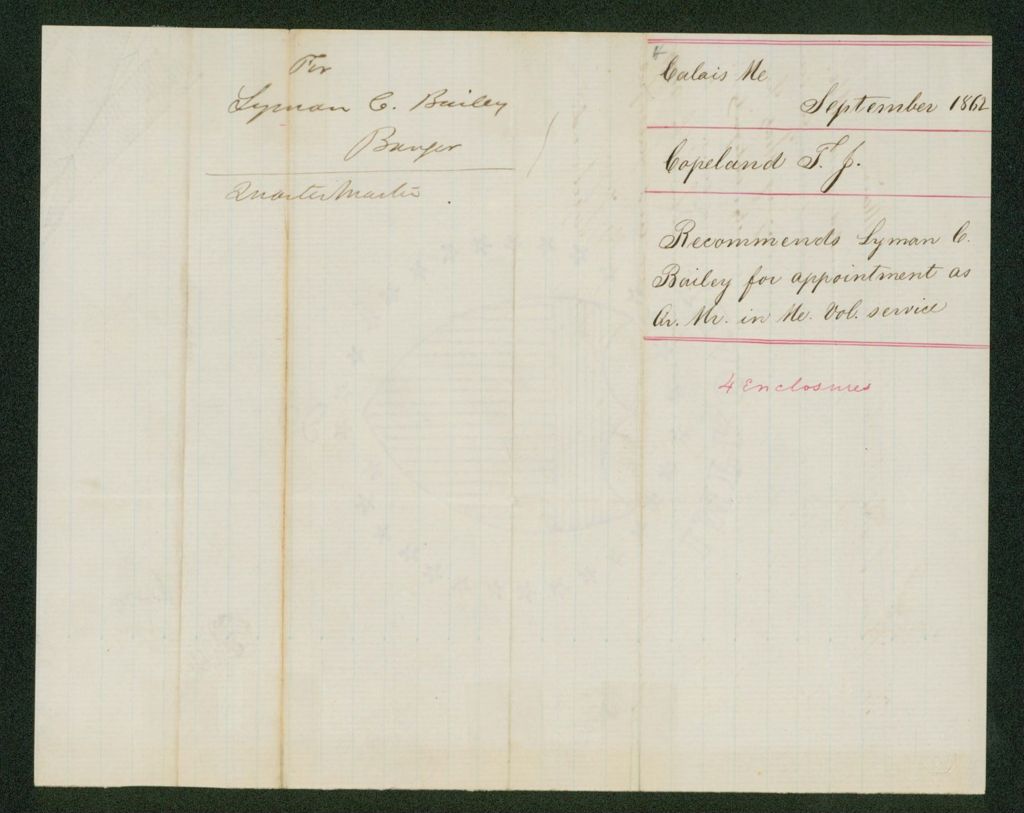 For
Lyman C. Bailey
Bangor
Quarter Master
Calais Me
September 1862
Copeland T. J.
Recommends Lyman C.
Bailey for appointment as
Qr. Mr. in Me. Vol. service
4 Enclosures